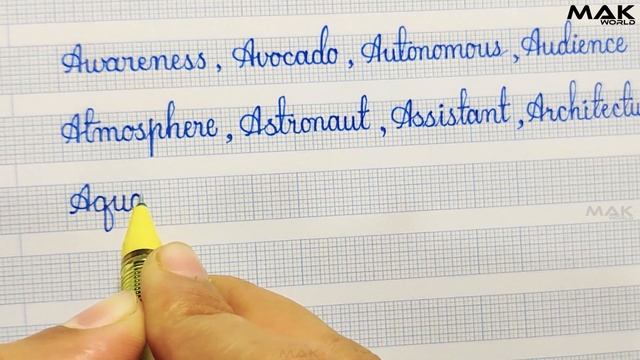 MAK
WORLD
Awareness, Avocado, Autonomous, Audience
Atmosphere, Astronaut, Assistant, Architectu
Aqua
MAK
MAK